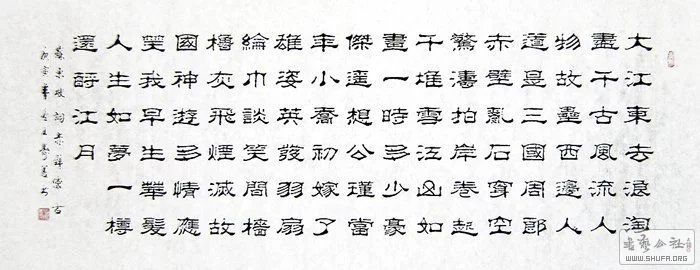 大江東去浪淘
盡千古風流人
物故壘西邊人
道是三國周郎
赤壁亂石穿空
驚濤拍岸卷起
千堆雪江山如
畫一時多少豪
傑遙想公瑾當
年小喬初嫁了
雄姿英發羽扇
綸巾談笑間檣
櫓灰飛煙滅故
國神遊多情應
笑我早生華髮
人生如夢一樽
還酹江月
蘇東坡詞赤壁懷古
书艺公社
WWW.SHUFA.ORG